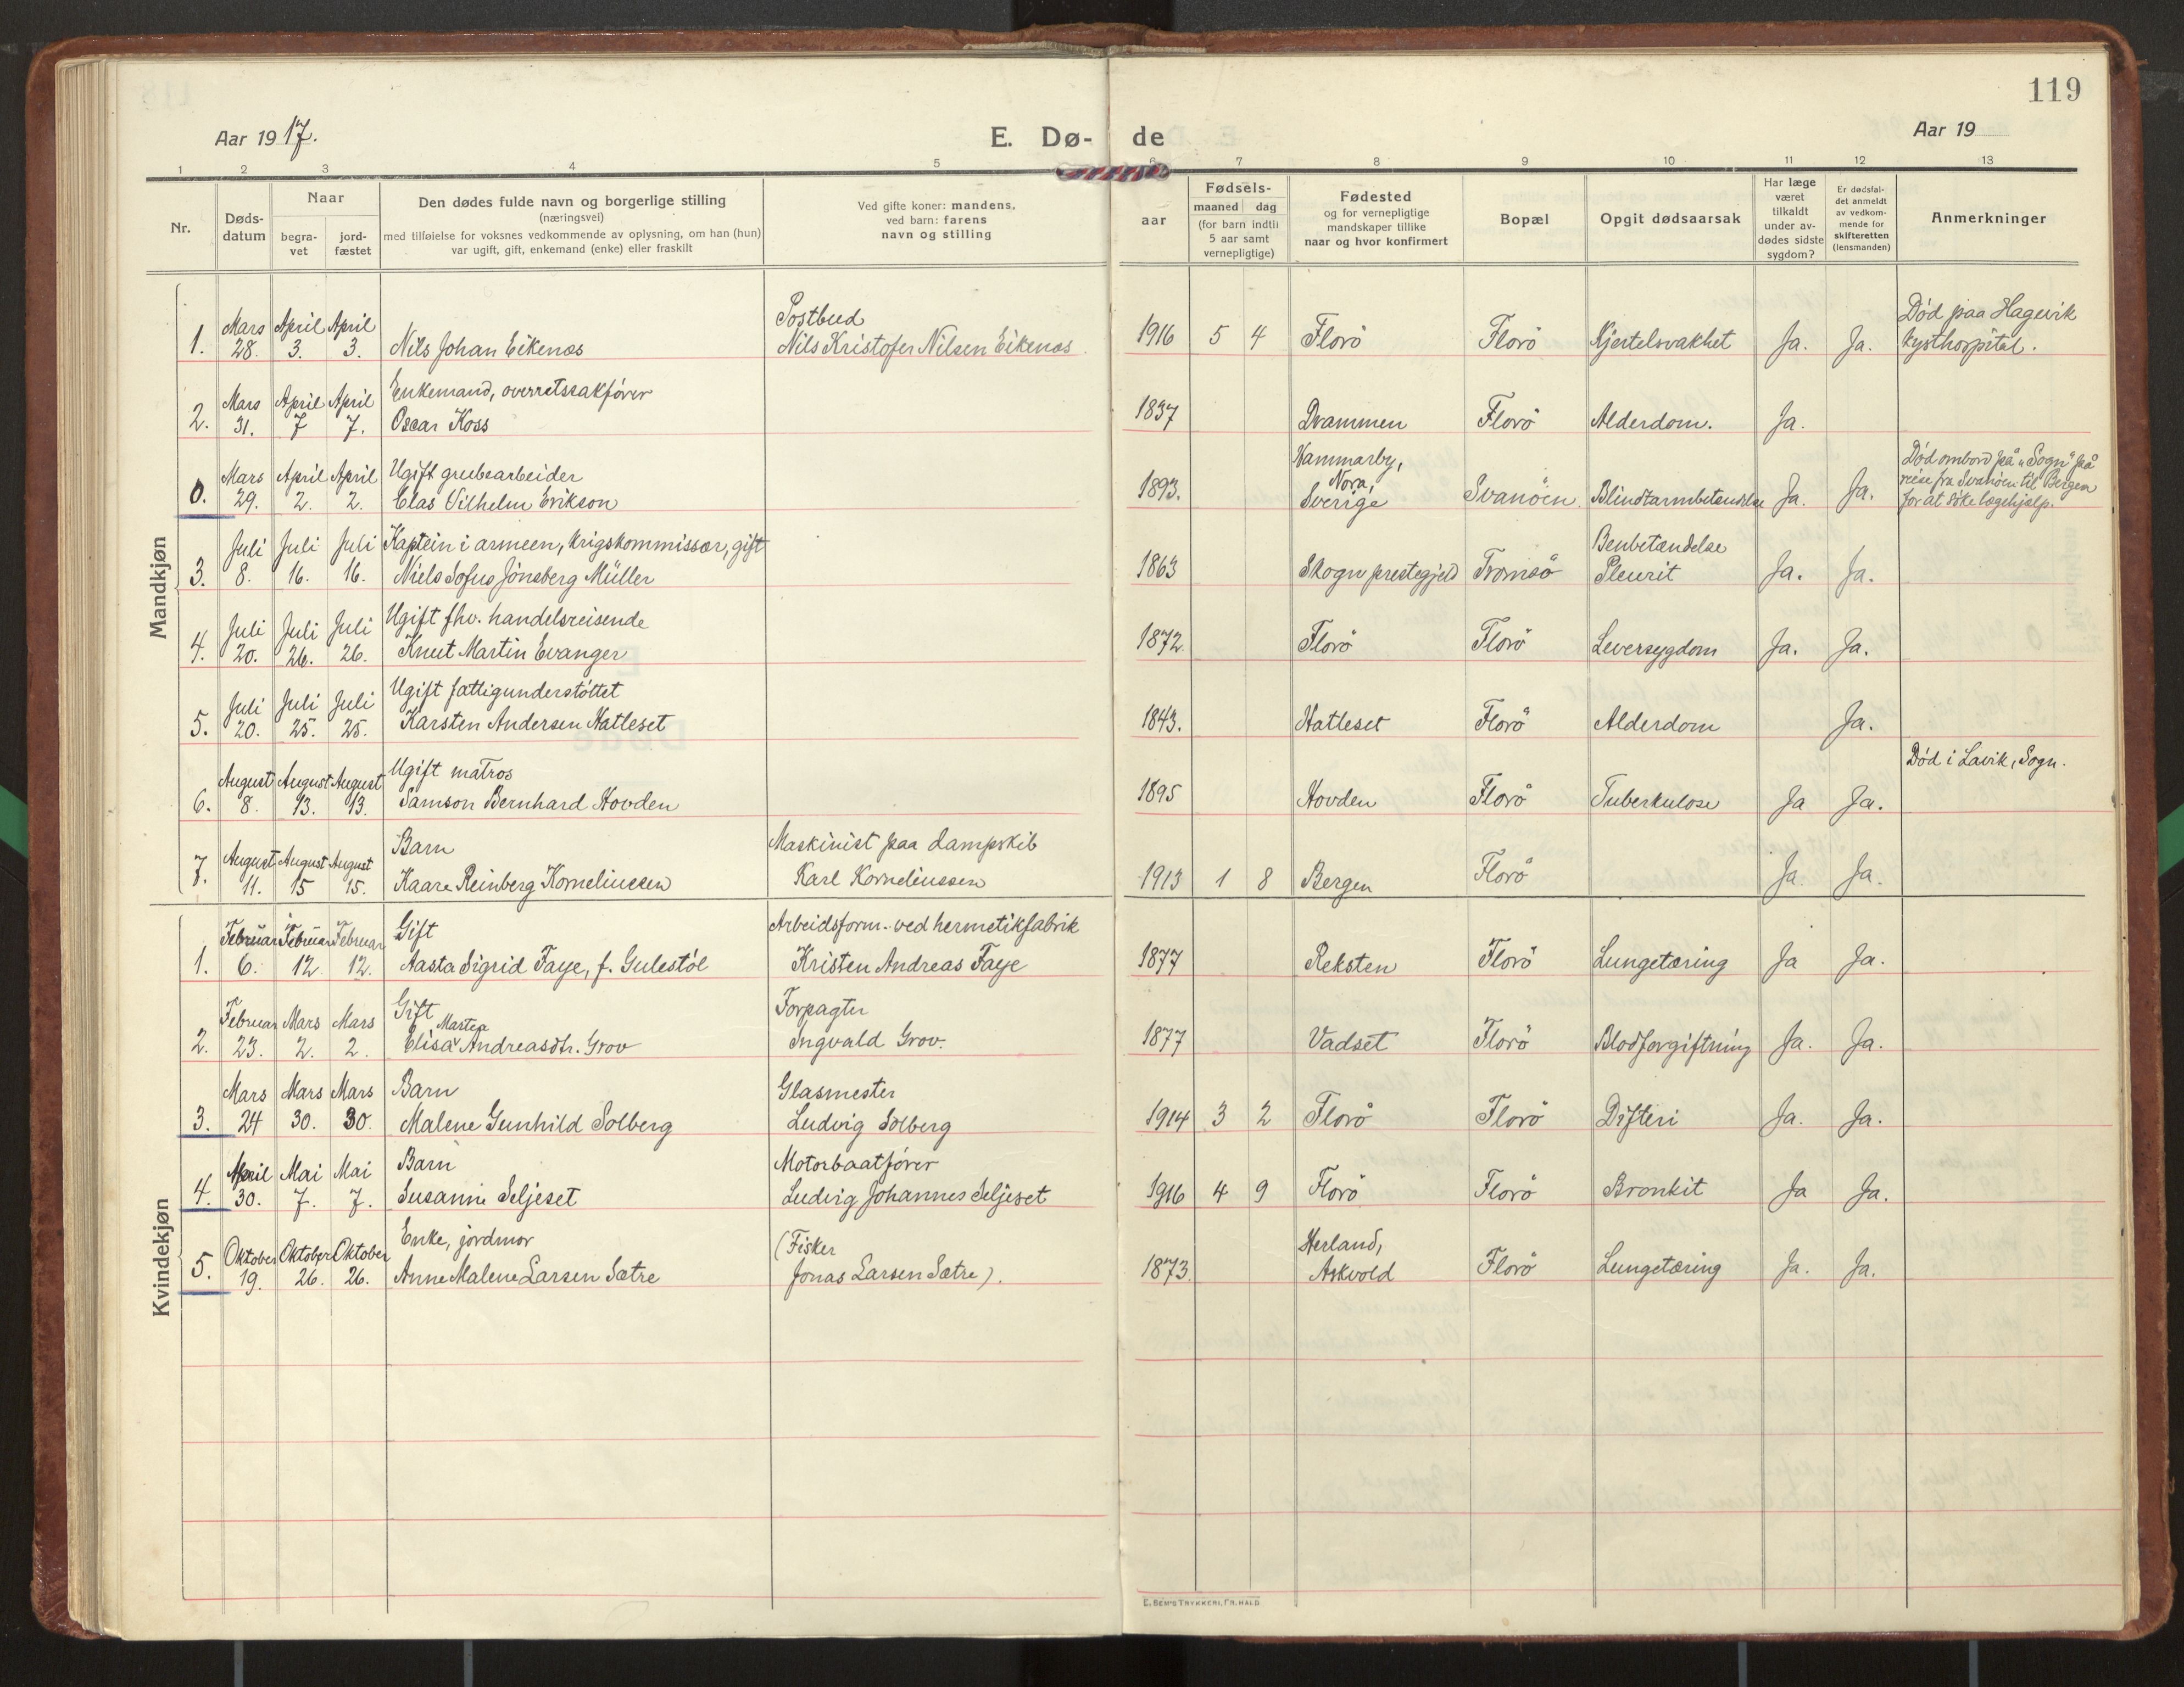 119
Aar 1917.
E. Dø- de
Aar 19
1 2 3 4 5 6 7 8 9 10 11 12 13
Nr.
Døds-
datum
Naar
begra-
vet
jord-
fæstet
Den dødes fulde navn og borgerlige stilling
(næringsvei)
med tilføielse for voksnes vedkommende av oplysning, om han (hun)
var ugift, gift, enkemand (enke) eller fraskilt
Ved gifte koner: mandens,
ved barn: farens
navn og stilling
aar
Fødsels-
maaned dag
(for barn indtil
5 aar samt
vernepligtige)
Fødested
og for vernepligtige
mandskaper tillike
naar og hvor konfirmert
Bopæl
Opgit dødsaarsak
Har læge
været
tilkaldt
under av-
dødes sidste
sygdom?
Er dødsfal-
det anmeldt
av vedkom-
mende for
skifteretten
(lensmanden)
Anmerkninger
Mandkjøn
Postbud Død paa Hagevik
Mars April April
1. 28. 3. 3. Nils Johan Eikenæs Nils Kristofer Nilsen Eikenæs. 1916 5 4 Florö Florö Kjertelsvakhet Ja. Ja. kysthospital.
Mars April April Enkemand, overretssakfører
2. 31. 7 7. Oscar Koss 1837 Drammen Florö Alderdom. Ja.
Mars April April Ugift grubearbeider Hammarby, Død ombord på "Sogn" på
Nora, reise fra Svanöen til Bergen
0. 29. 2. 2. Elas Vilhelm Erikson 1893. Sverige Svanöen Blindtarmbetændelse Ja. Ja. for at söke lægehjælp.
Juli Juli Juli Kaptein i armeen, krigskommissær, gift Benbetændelse
3. 8. 16. 16. Niels Sofus Jönsberg Müller 1863 Skogn prestegjeld Tromsö Pleurit Ja. Ja.
Juli Juli Juli Ugift fhv. handelsreisende
4. 20. 26. 26. Knut Martin Evanger 1872. Florö Florö Leversygdom Ja. Ja.
Juli Juli Juli Ugift fattigunderstöttet
5. 20. 25. 25. Karsten Andersen Hatleset 1843. Hatleset Florö Alderdom Ja.
August August August Ugift matros Død i Lavik, Sogn.
6. 8. 13. 13. Samson Bernhard Hovden 1895 Hovden Florö Tuberkulose Ja Ja.
August August August Barn Maskinist paa dampskib
7. 11. 15 15. Kaare Reinberg Korneliussen Karl Korneliussen 1913 1 8 Bergen Florö Ja. Ja.
Kvindekjøn
Februar Februar Februar Gift Arbeidsform. ved hermetikfabrik
1. 6. 12. 12. Aasta Sigrid Faye, f. Gulestöl Kristen Andreas Faye 1877 Reksten Florö Lungetæring Ja Ja.
Februar Mars Mars Gift Forpagter
Martea
2. 23. 2. 2. Elisa Andreasdtr. Grov Ingvald Grov. 1877 Vadset Florö Blodforgiftning Ja. Ja.
Mars Mars Mars Barn Glasmester
3. 24 30. 30. Malene Gunhild Solberg Ludvig Solberg 1914 3 2 Florö Florö Difteri Ja. Ja.
April Mai Mai Barn Motorbaatfører
4. 30. 7. 7. Susanne Seljeset Ludvig Johannes Seljeset 1916 4 9 Florö Florö Bronkit Ja Ja.
Oktober Oktober Oktober Enke, jordmor (Fisker Herland,
5. 19. 26. 26. Anne Malene Larsen Sætre Jonas Larsen Sætre). 1873. Askvold Florö Lungetæring Ja. Ja.
E. SEM'S TRYKKERI, FR. HALD